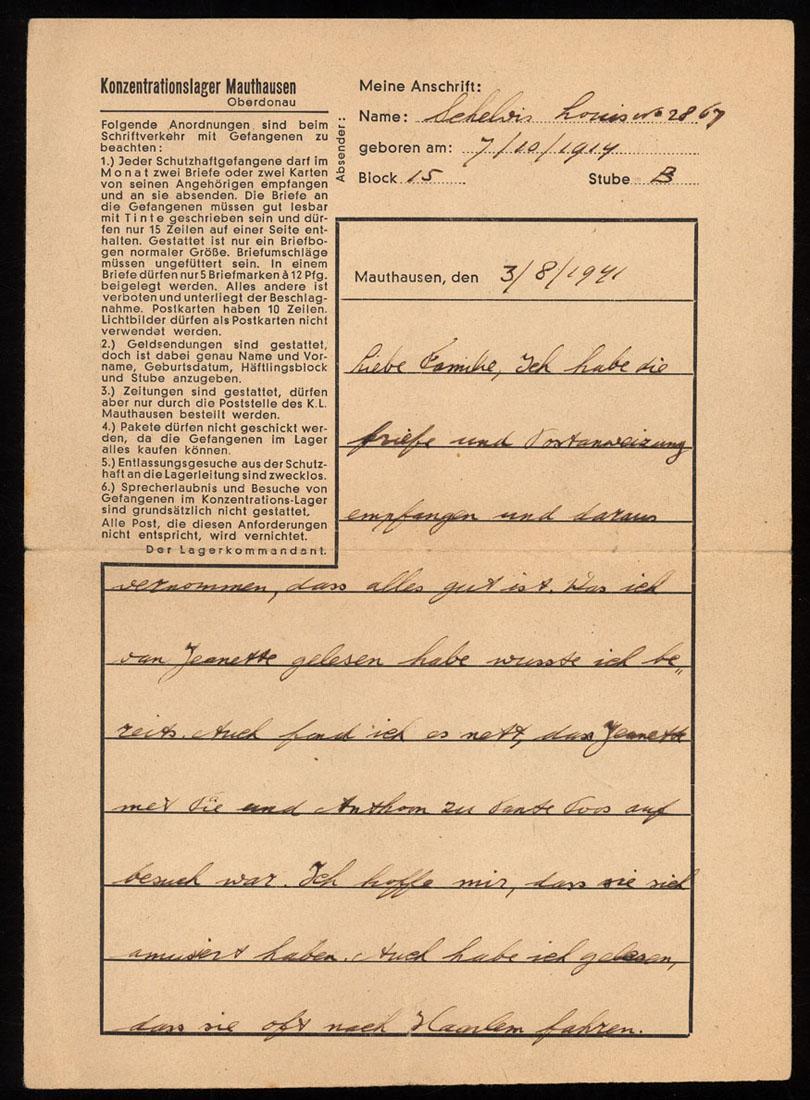 Konzentrationslager Mauthausen
Oberdonau
Folgende Anordnungen sind beim
Schriftverkehr mit Gefangenen zu
beachten:
1.) Jeder Schutzhaftgefangene darf im
Monat zwei Briefe oder zwei Karten
von seinen Angehörigen empfangen
und an sie absenden. Die Briefe an
die Gefangenen müssen gut lesbar
mit Tinte geschrieben sein und dür-
fen nur 15 Zeilen auf einer Seite ent-
halten. Gestattet ist nur ein Briefbo-
gen normaler Größe. Briefumschläge
müssen ungefüttert sein. In einem
Briefe dürfen nur 5 Briefmarken à 12 Pfg.
beigelegt werden. Alles andere ist
verboten und unterliegt der Beschlag-
nahme. Postkarten haben 10 Zeilen.
Lichtbilder dürfen als Postkarten nicht
verwendet werden.
2.) Geldsendungen sind gestattet,
doch ist dabei genau Name und Vor-
name, Geburtsdatum, Häftlingsblock
und Stube anzugeben.
3.) Zeitungen sind gestattet, dürfen
aber nur durch die Poststelle des K.L.
Mauthausen bestellt werden.
4.) Pakete dürfen nicht geschickt wer-
den, da die Gefangenen im Lager
alles kaufen können.
5.) Entlassungsgesuche aus der Schutz-
haft an die Lagerleitung sind zwecklos.
6.) Sprecherlaubnis und Besuche von
Gefangenen im Konzentrations-Lager
sind grundsätzlich nicht gestattet.
Alle Post, die diesen Anforderungen
nicht entspricht, wird vernichtet.
Der Lagerkommandant.
Absender:
Meine Anschrift:
Name: Schelvis Louis No 2867
geboren am: 7/10/1914
Block 15 Stube B
Mauthausen, den 3/8/1941
Liebe Familie, Ich habe die
briefe und Postanweizung
empfangen und daraus
vernommen, dass alles gut ist. Was ich
van Jeanette gelesen habe wusste ich be„
reits. Auch fand ich es nett, dass Jeanette
met Pie und Anthoon zu Tante Roos auf
besuch war. Ich hoffe mir, dass sie sich
amusiert haben. Auch habe ich gelesen,
dass sie oft nach Haarlem fahren.